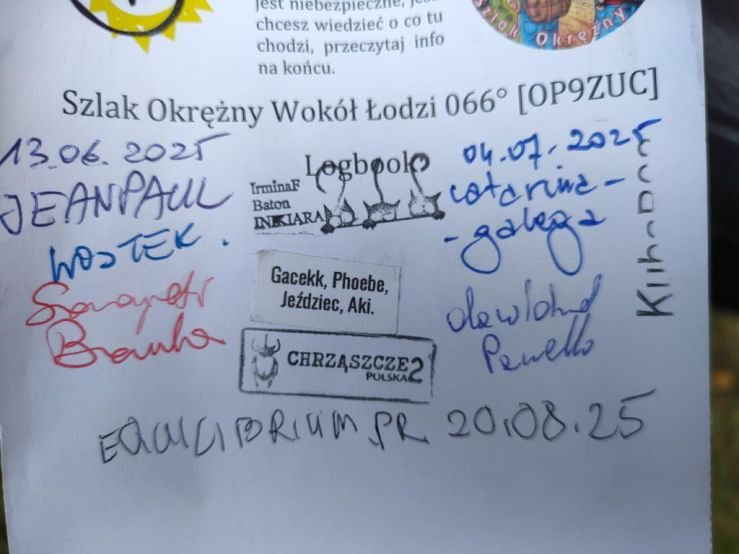 jest niebezpieczne, jeśli
chcesz wiedzieć o co tu
chodzi, przeczytaj info
na końcu.
Szlak Okrężny
Szlak Okrężny Wokół Łodzi 066° [OP9ZUC]
13.06.2025
JEANPAUL
WOJTEK.
Logbook
IrminaF
Baton
INKIARA
Gacekk, Phoebe,
Jeździec, Aki.
CHRZĄSZCZE2
POLSKA
04.07.2025
catarina-
-galega
Pawello
EQUILIBRIUM_PR 20.08.25